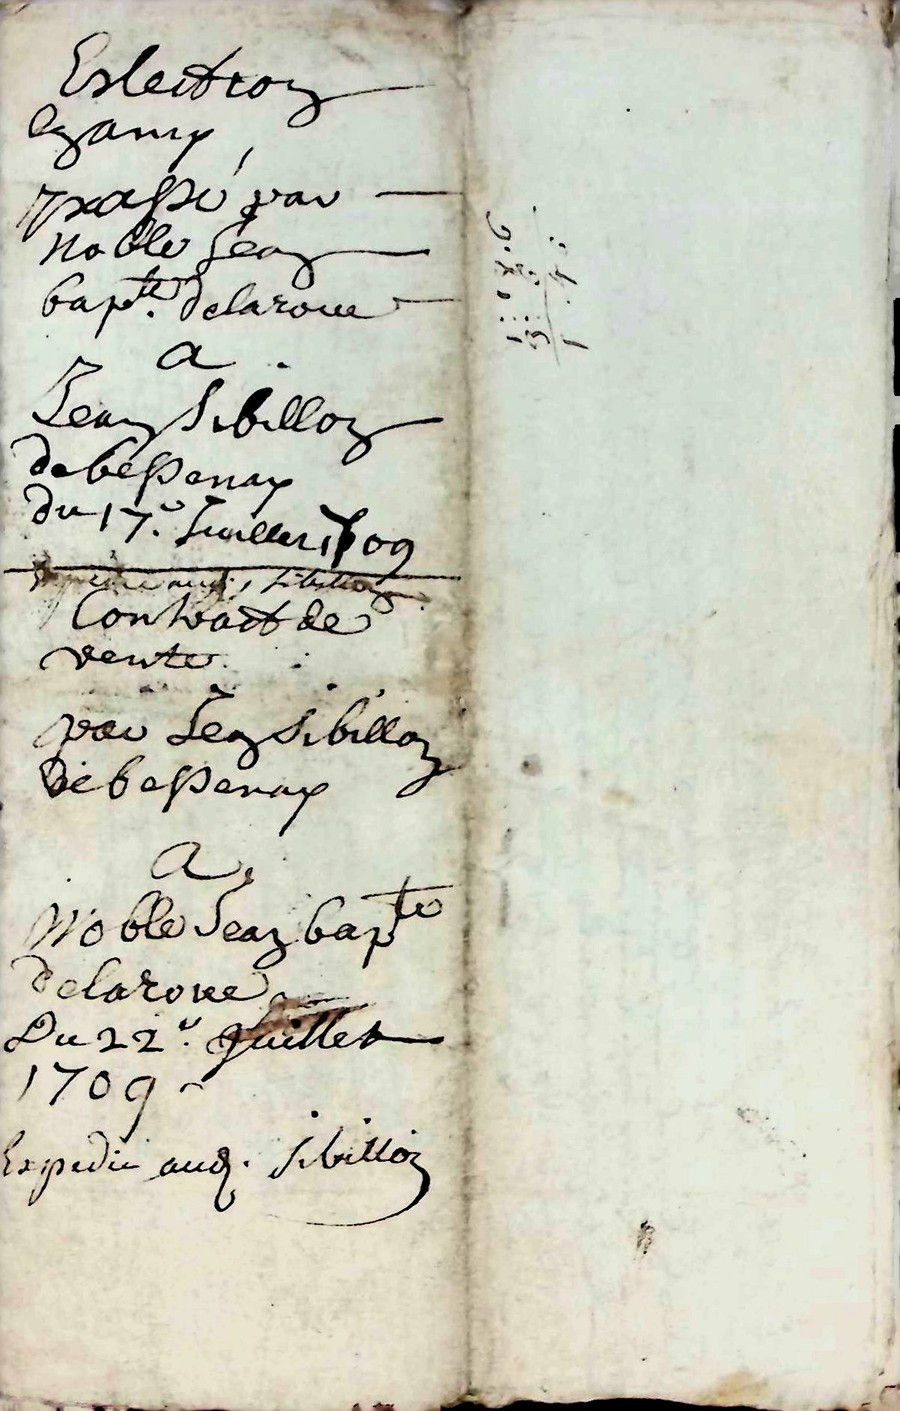 Eslection
en amy
passé par
Noble Jean
bapte. delaroue
a
Jean Sibillon
de bessenay
du 17e. Juillet 1709
Expedié aud. Sibillon
Contract de
vente
par Jean Sibillon
de bessenay
a
Noble Jean bapte
delaroue
Du 22e. Juillet
1709
Expedié aud. Sibillon